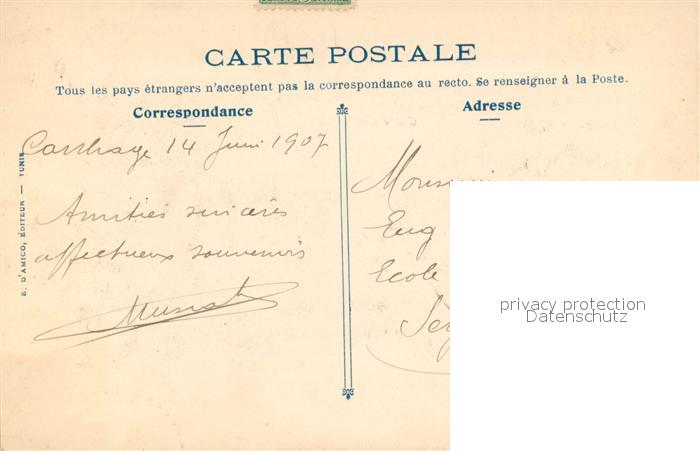 CARTE POSTALE
Tous les pays étrangers n'acceptent pas la correspondance au recto. Se renseigner à la Poste.
Correspondance
Adresse
Carthage 14 Juin 1907
Amitiés sincères
affectueux souvenirs
E. D'AMICO, ÉDITEUR — TUNIS
Eug
Ecole
privacy protection
Datenschutz